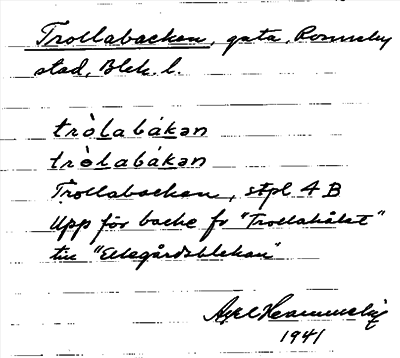 Trollabacken, gata, Ronneby
stad, Blek. l.
tròlabákən
tròlabákən
Trollabackan, stpl 4 B
Upp för backe fr "Trollahålet"
till "Ellegårdsblekan"
Axel
1941